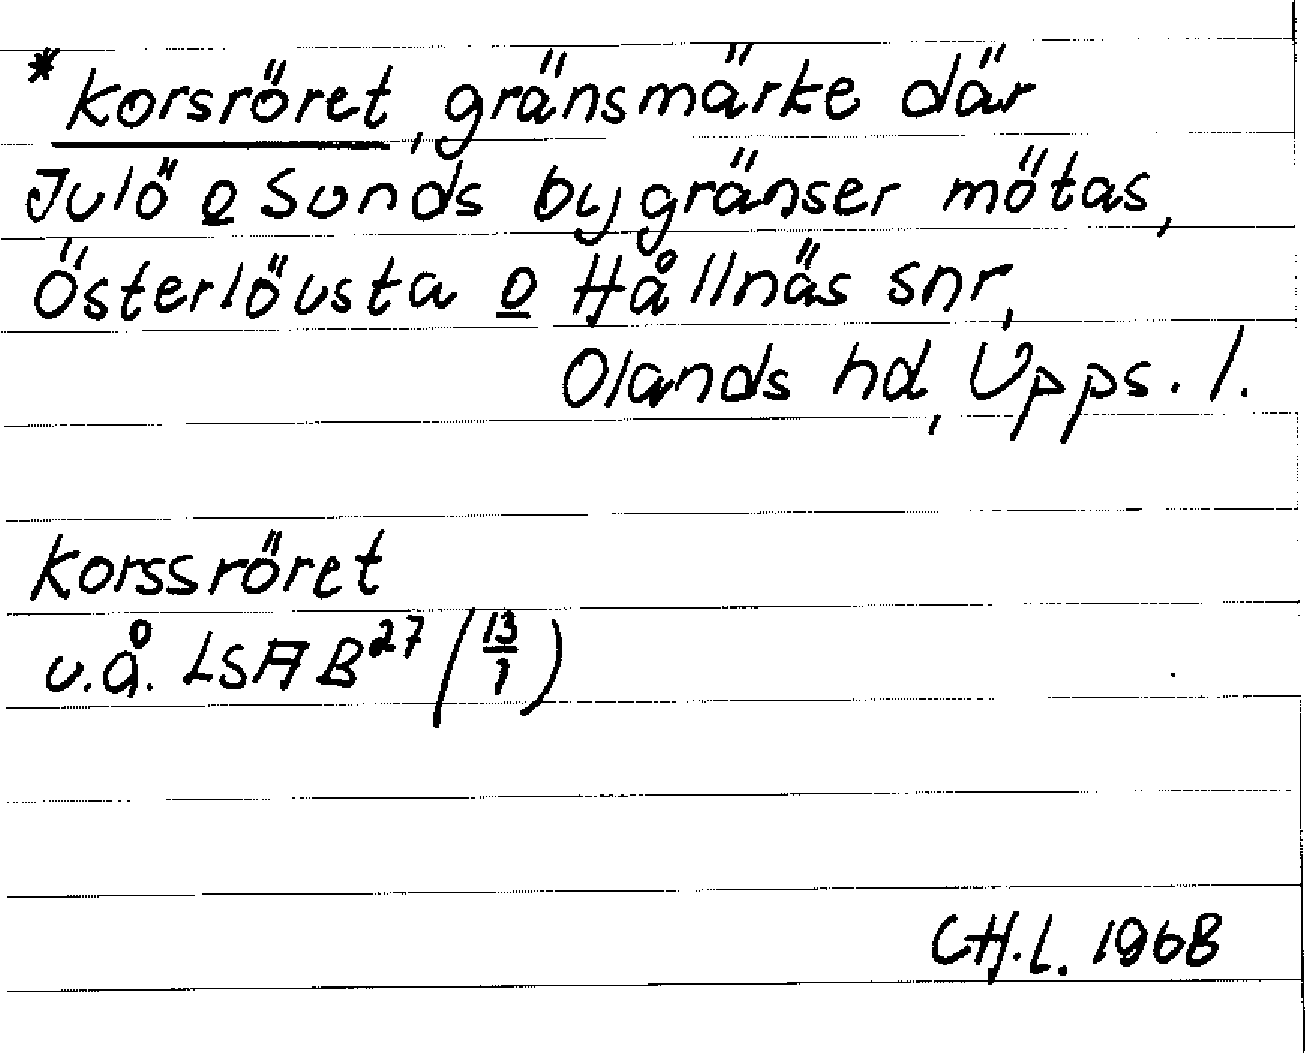 * Korsröret, gränsmärke där
Julö o Sunds bygränser mötas,
Österlövsta o Hållnäs snr,
Olands hd, Upps. l.
Korssröret
u.å. LSA B27 (13/1)
CH.L. 1968